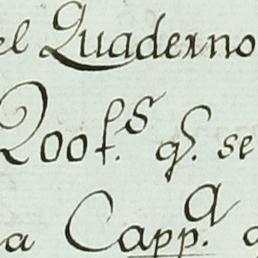 el Quaderno
200 f.s q.s se
a Capp.a